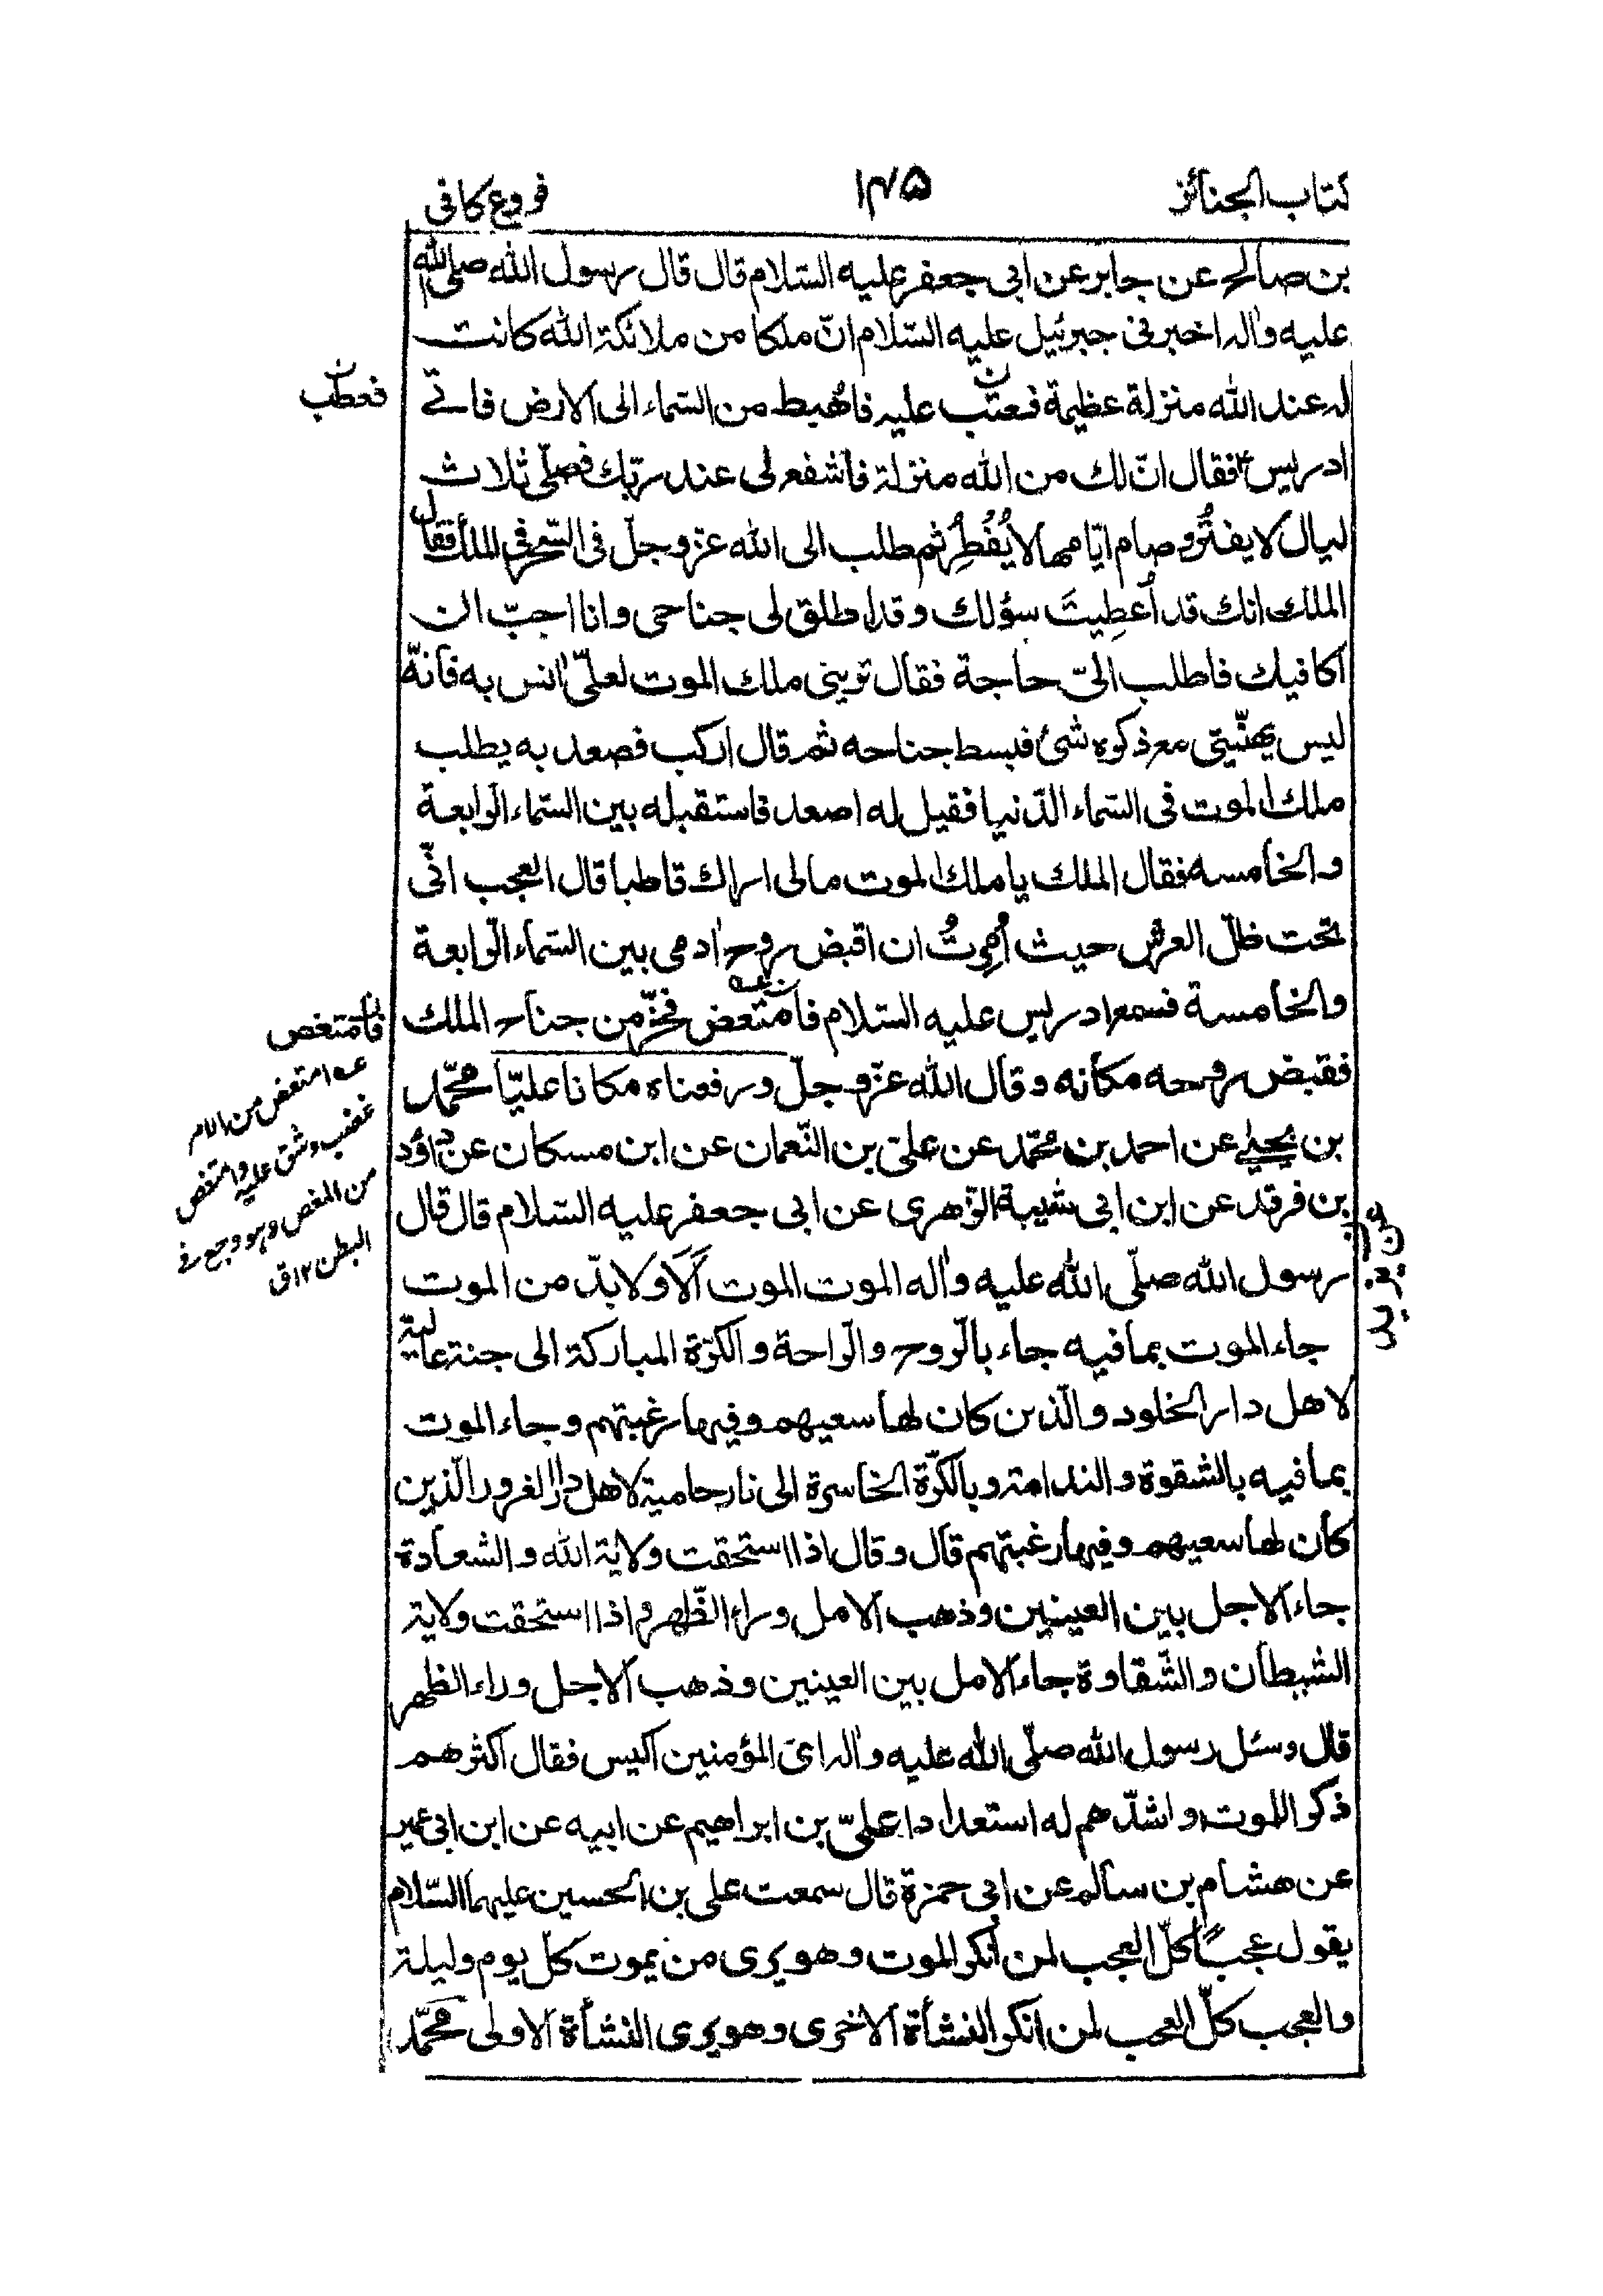 كتاب الجنائز
۱۳۵
فروع كافى
بن صالح عن جابر عن ابى جعفر عليه السّلام قال قال رسول الله صلى الله
عليه واله اخبرنى جبرئيل عليه السّلام انّ ملكا من ملائكة الله كانت
له عند الله منزلة عظيمة فعتب عليه فاهبط من السّماء الى الارض فاتى
ادريس ع فقال انّ لك من الله منزلة فاشفع لى عند ربّك فصلّى ثلاث
ليال لا يفتُرُ وصام ايّامها لا يُفْطِرُ ثم طلب الى الله عزّ وجلّ فى السّحر فى الملك فقال
الملك انك قد اُعطِيتَ سؤلك وقد اطلق لى جناحى وانا احبّ ان
اكافيك فاطلب الىّ حاجة فقال ترينى ملك الموت لعلّى انس به فانّه
ليس يهنّيتى مع ذكره شئ فبسط جناحه ثم قال اركب فصعد به يطلب
ملك الموت فى السّماء الدّنيا فقيل له اصعد فاستقبله بين السّماء الرّابعة
والخامسه فقال الملك يا ملك الموت مالى اراك قاطبا قال العجب انّى
تحت ظلّ العرش حيث اُمِرتُ ان اقبض روح ادمى بين السّماء الرّابعة
والخامسة فسمع ادريس عليه السّلام فامتعض فخرّ من جناح الملك
فقبض روحه مكانه وقال الله عزّ وجلّ ورفعناه مكانا عليّا محمّد
بن يحيى عن احمد بن محمّد عن علىّ بن النّعمان عن ابن مسكان عن داؤد
بن فرقد عن ابن ابى شيبة الزّهرى عن ابى جعفر عليه السّلام قال قال
رسول الله صلّى الله عليه واله الموت الموت اَلَا ولا بدّ من الموت
جاء الموت بما فيه جاء بالرّوح والرّاحة والكرّة المباركة الى جنة عالية
لاهل دار الخلود والّذين كان لها سعيهم وفيها رغبتهم وجاء الموت
بما فيه بالشقوة والندامة وبالكرّة الخاسرة الى نار حامية لاهل دار الغرور الّذين
كان لها سعيهم وفيها رغبتهم قال وقال اذا استحقت ولاية الله والسّعادة
جاء الاجل بين العينين وذهب الامل وراء الظّهر واذا استحقت ولاية
الشيطان والشّقاوة جاء الامل بين العينين وذهب الاجل وراء الظهر
قال وسئل رسول الله صلّى الله عليه واله اىّ المؤمنين اكيس فقال اكثرهم
ذكرا للموت واشدّهم له استعدادا علىّ بن ابراهيم عن ابيه عن ابن ابى عمير
عن هشام بن سالم عن ابى حمزة قال سمعت على بن الحسين عليهما السّلام
يقول عجبًا كلّ العجب لمن انكر الموت وهو يرى من يموت كلّ يوم وليلة
والعجب كلّ العجب لمن انكر النشأة الاخرى وهو يرى النشأة الاولى محمّد
ن
فعطب
فامتغص
عه امتعض من الامر
غضب وشق عليه وامتغص
من المغص وهو وجع فى
البطن ۱۲ ق